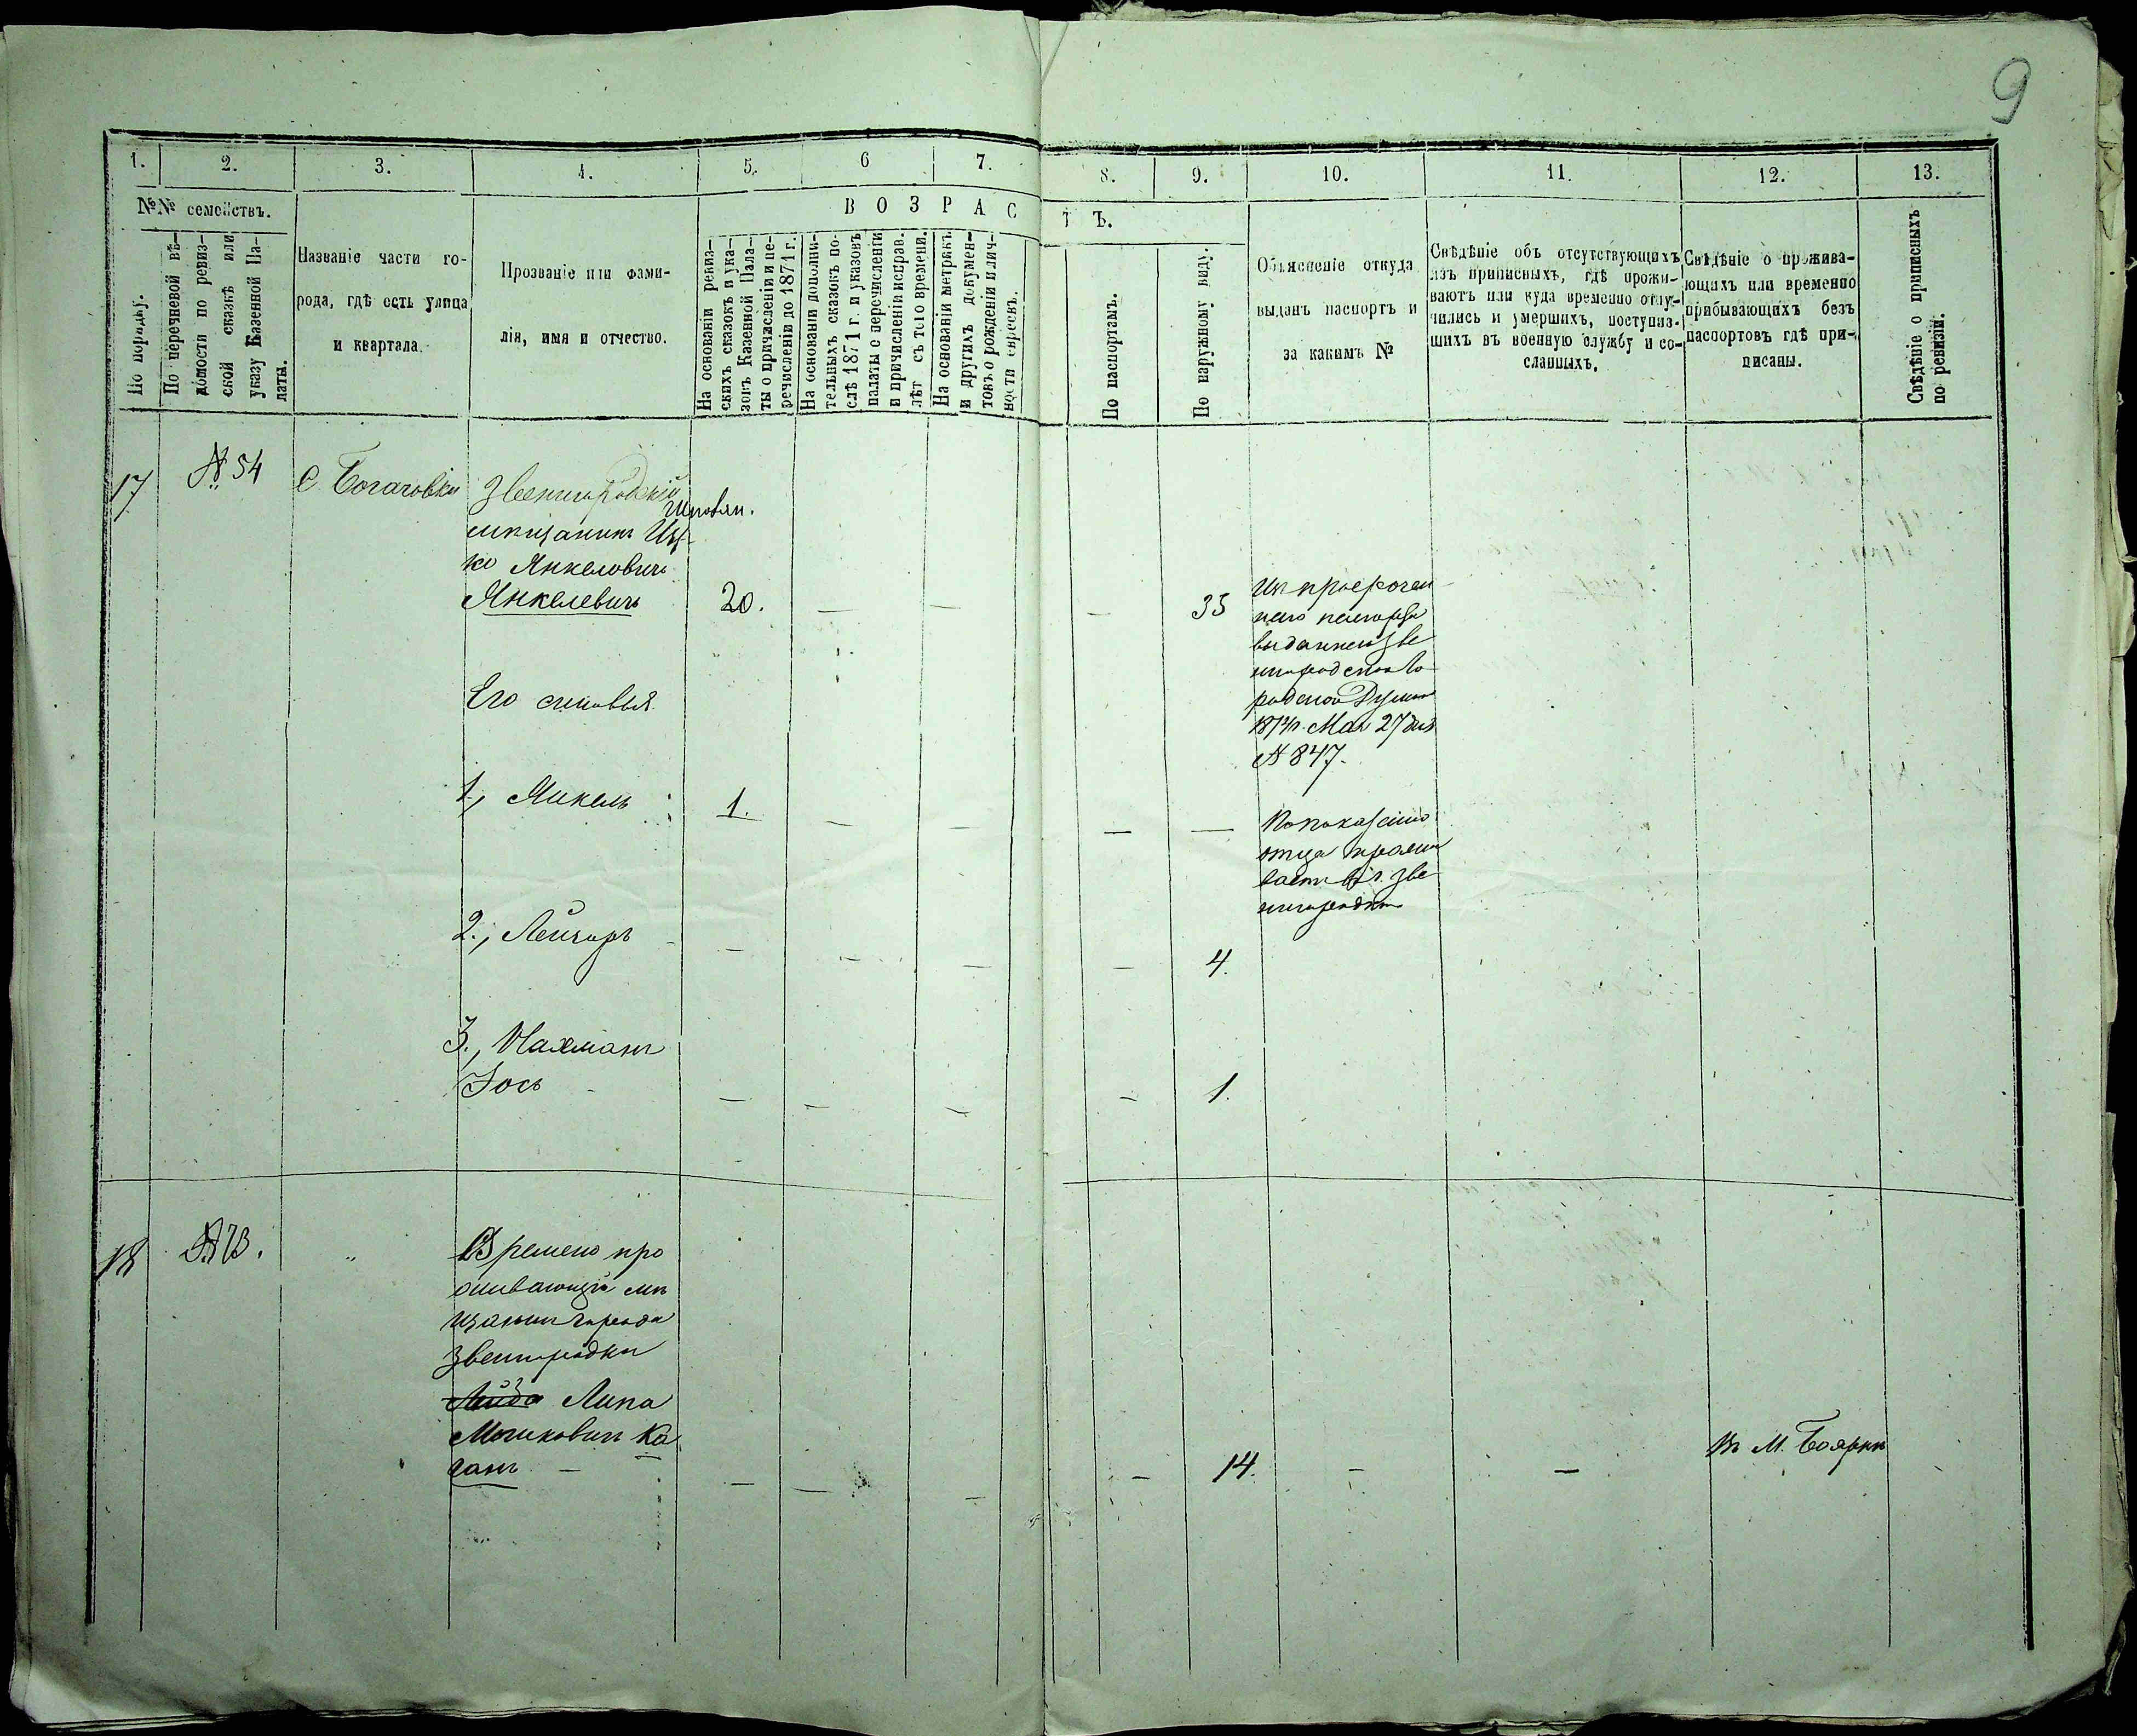 9
1.
2.
3.
4.
5.
6
7.
8.
9.
10.
11.
12.
13.
№№ семействъ.
По порядку.
По перечневой вѣ-
домости по ревиз-
ской сказкѣ или
указу Казенной Па-
латы.
Названіе части го-
рода, гдѣ есть улица
и квартала.
Прозваніе или фами-
лія, имя и отчество.
В О З Р А С Т Ъ.
На основаніи ревиз-
скихъ сказокъ и ука-
зовъ Казенной Пала-
ты о причисленіи и пе-
речисленіи до 1871 г.
На основаніи дополни-
тельныхъ сказокъ по-
слѣ 1871 г. и указовъ
палаты с перечисленіи
и причисленіи исправ.
лѣт съ того времени.
На основаніи метрикъ
и другихъ докумен-
товъ о рожденіи и лич-
ности евреевъ.
По паспортамъ.
По наружному виду.
Объясненіе откуда
выданъ паспортъ и
за какимъ №
Свѣдѣніе объ отсутствующихъ
изъ приписныхъ, гдѣ прожи-
ваютъ или куда временно отлу-
чились и умершихъ, поступив-
шихъ въ военную службу и со-
сланныхъ.
Свѣдѣніе о прожива-
ющихъ или временно
прибывающихъ безъ
паспортовъ гдѣ при-
писаны.
Свѣдѣніе о приписныхъ
по ревизіи.
17
№ 54
С. Богачовки
Звенигородскій
мѣщанинъ Иц
ко Янкелевичъ
Янкелевичъ
20.
—
—
—
35
выданнаго Зве
нигородской Го
родской Думой
Мая 27 дня
№ 847.
Его сыновья
1, Янкель
1.
—
—
—
—
По показанію
отца прожи
ваетъ въ г. Зве
нигородкѣ
2., Лейзоръ
—
—
—
—
4.
3., Нахманъ
Іось
—
—
—
—
1.
18
№ 73.
"
Времено про
живающій мѣ
щанинъ города
Звенигородки
Липа
Мошковичъ Ка
ганъ
—
—
—
—
14.
—
—
Въ М. Бояркѣ